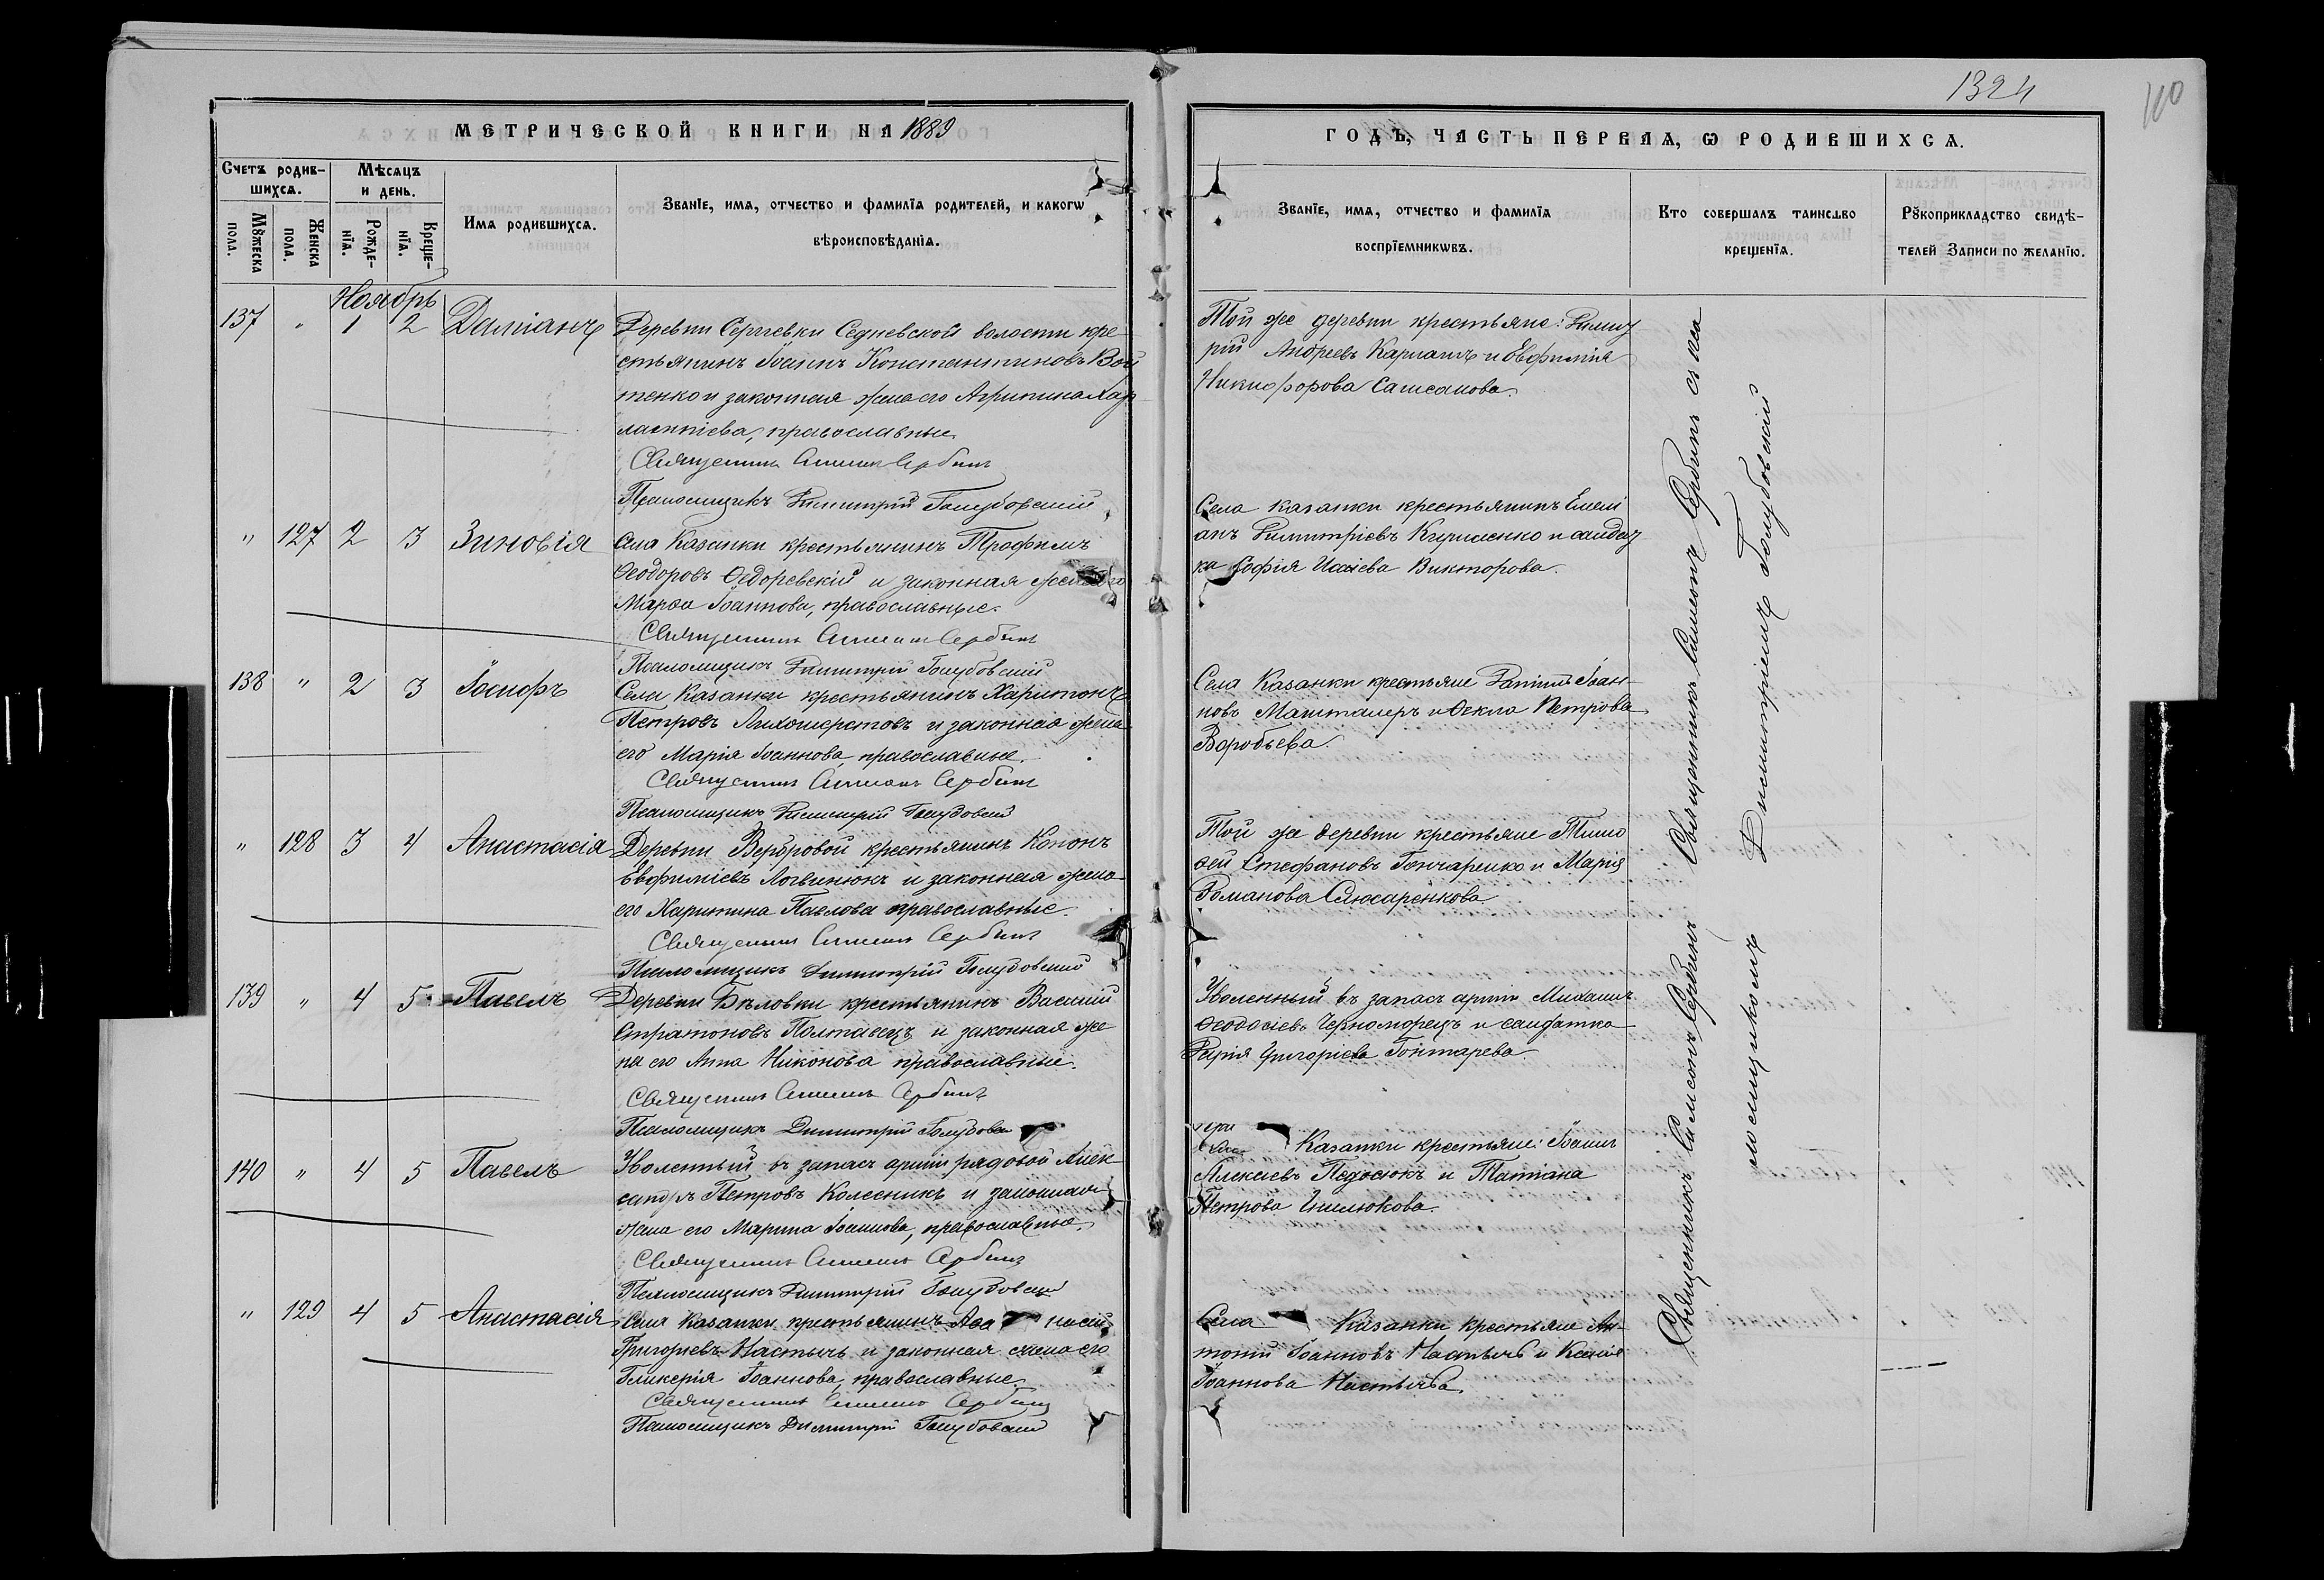 1324
110
МЕТРИЧЕСКОЙ КНИГИ НА 1889
ГОДЪ, ЧАСТЬ ПЕРВАЯ, Ѡ РОДИВШИХСѦ.
Счетъ родив-
шихсѧ.
Мѣсяцъ
и день.
Мꙋжеска
пола.
Женска
пола.
Рожде-
нїѧ.
Креще-
нїѧ.
Имѧ родившихсѧ.
Званїе, имѧ, отчество и фамилїѧ родителей, и какогѡ
вѣроисповѣданїѧ.
Званїе, имѧ, отчество и фамилїѧ
воспрїемникѡвъ.
Кто совершалъ таинство
крещенїѧ.
Рꙋкоприкладство свидѣ-
телей Записи по желанїю.
Ноябрь
137 " 1 2 Даміанъ
Деревни Сергѣевки Седневской волости кре
стьянинъ Іоаннъ Константиновъ Вой
тенко и законная жена его Агрипина Хар
лампіева, православные.
Священникъ Симеонъ Сербинъ
Псаломщикъ Димитрій Голубовскій
Той же деревни крестьяне: Димит
рій Андреевъ Карпанъ и Евфимія
Никифорова
" 127 2 3 Зиновія
Села Казанки крестьянинъ Трофимъ
Ѳеодоровъ Ѳедоревскій и законная жена его
Марѳа Іоаннова, православные.
Священникъ Симеонъ Сербинъ
Псаломщикъ Димитрій Голубовскій
Села Казанки крестьянинъ Емелі
анъ Димитріевъ и солдат
ка Софія Исаіева Викторова.
138 " 2 3 Іосифъ
Села Казанки крестьянинъ Харитонъ
Петровъ Лихошерстовъ и законная жена
его Марія Іоаннова, православные.
Священникъ Симеонъ Сербинъ
Псаломщикъ Димитрій Голубовскій
Села Казанки крестьяне Даніилъ Іоан-
новъ Машталеръ и Ѳекла Петрова
Воробьева.
" 128 3 4 Анастасія
Деревни Вербовой крестьянинъ Кононъ
Евфиміевъ Логвинюкъ и законная жена
его Харитина Павлова православные.
Священникъ Симеонъ Сербинъ
Псаломщикъ Димитрій Голубовскій
Той же деревни крестьяне Тимо
ѳей Стефановъ Гончаренко и Марія
Романова Слюсаренкова
139 " 4 5 Павелъ
Деревни Бѣловки крестьянинъ Василій
Стратоновъ Полтавецъ и законная же
на его Анна Никонова православные.
Священникъ Симеонъ Сербинъ
Псаломщикъ Димитрій Голубовскій
Уволенный въ запасъ арміи Михаилъ
Ѳеодосіевъ Черноморецъ и солдатка
Дарія Григоріева Гонтарева
140 " 4 5 Павелъ
Уволенный въ запасъ арміи рядовой Алек
сандръ Петровъ Колесникъ и законная
жена его Марина Іоаннова, православные.
Священникъ Симеонъ Сербинъ
Псаломщикъ Димитрій Голубовскій
Казанки крестьяне: Іоаннъ
Алексіевъ Педосюкъ и Татіана
Петрова
" 129 4 5 Анастасія
Села Казанки крестьянинъ Аѳанасій
Григоріевъ Настычъ и законная жена его
Гликерія Іоаннова, православные.
Священникъ Симеонъ Сербинъ
Псаломщикъ Димитрій Голубовскій
Села Казанки крестьяне Ан-
тоній Іоанновъ Настычъ и Ксенія
Іоаннова Настычева.
Священникъ Симеонъ Сербинъ Священникъ Симеонъ Сербинъ съ пса
ломщикомъ Димитріемъ Голубовскій